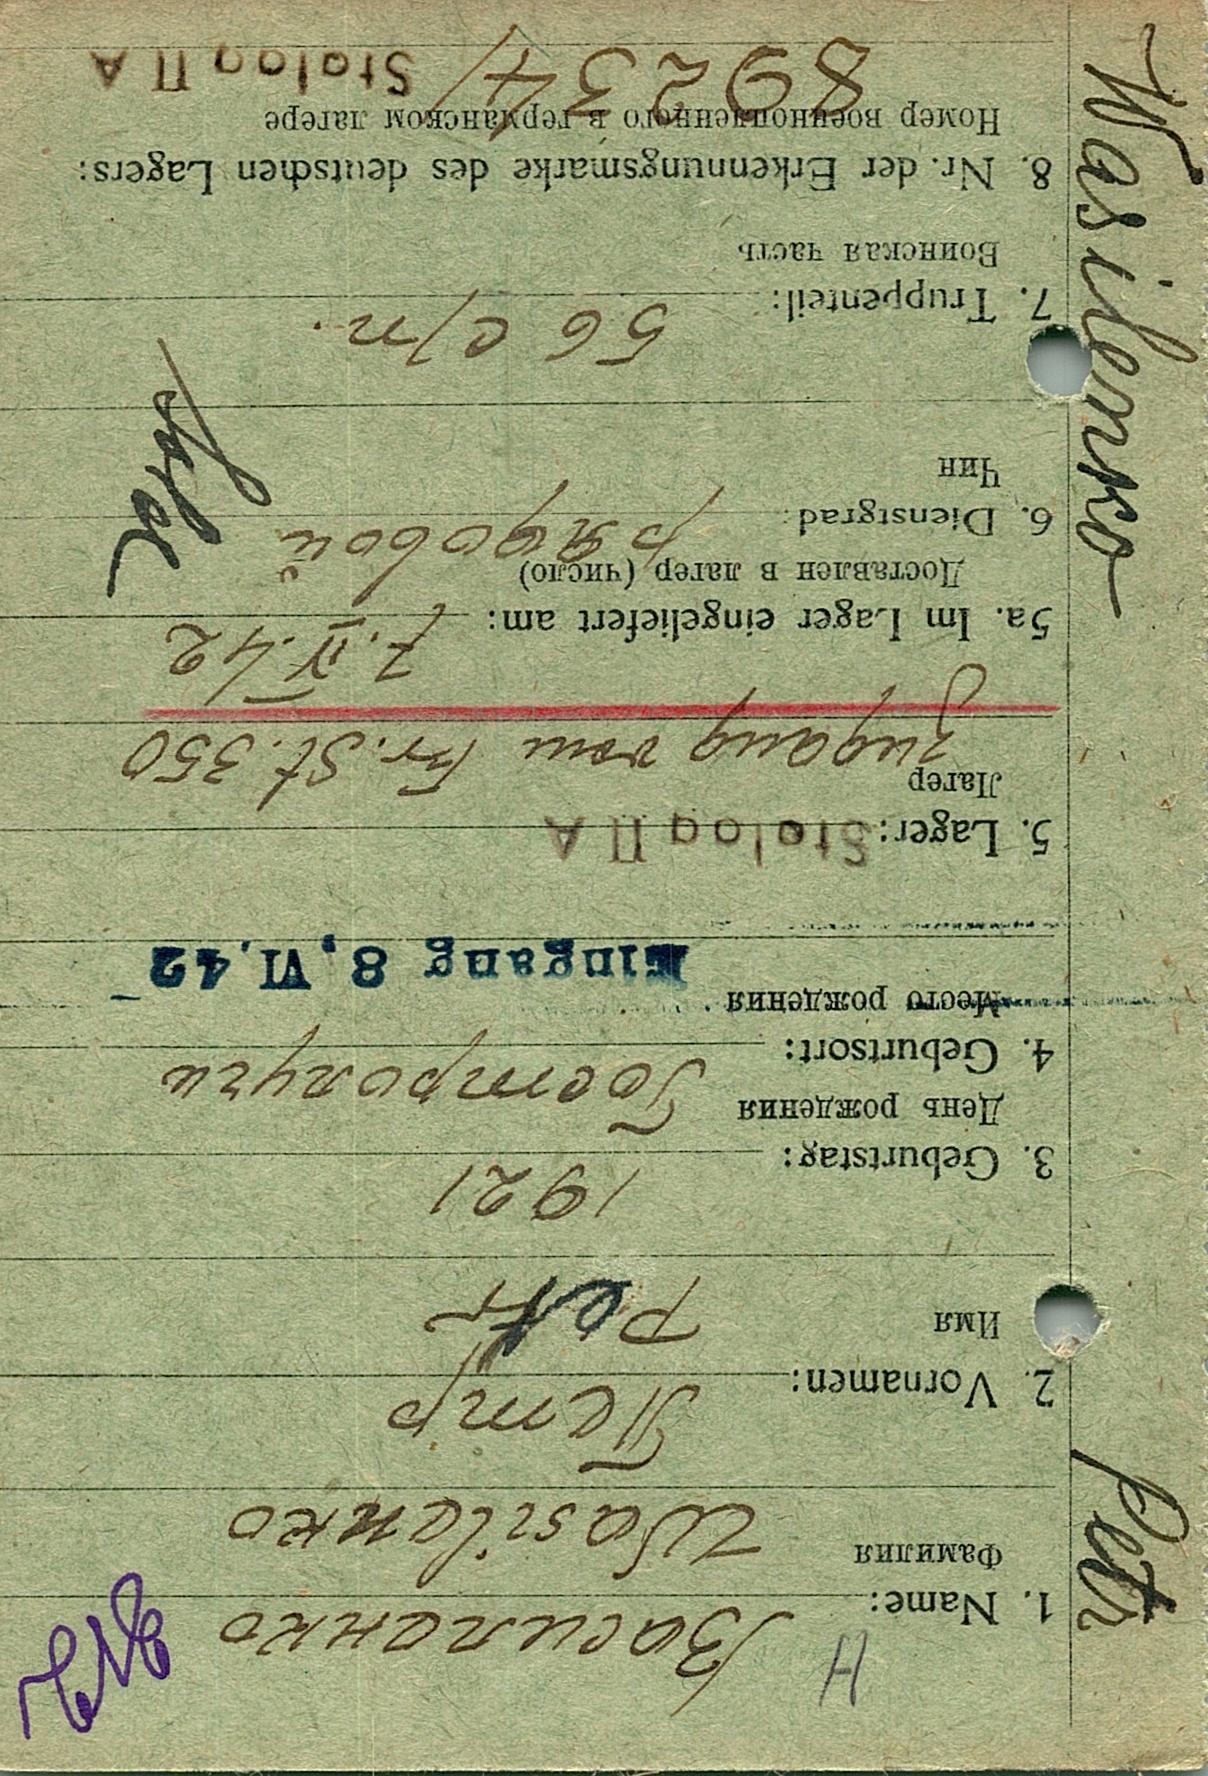 Wasilenko Petr
Н
1. Name: Василенко
Фамилия
Wasilenko
2. Vornamen: Петр
Имя
Petr
3. Geburtstag: 1921
День рождения
4. Geburtsort: Гостролучи
Место рождения
Eingang 8. VI. 42
5. Lager: Stalag II A
Лагер
Zugang vom Fr. St. 350
5a. Im Lager eingeliefert am: 7. IV. 42
Доставлен в лагер (число)
6. Dienstgrad: рядовой
Чин
Sold
7. Truppenteil: 56 с/п.
Воинская часть
8. Nr. der Erkennungsmarke des deutschen Lagers:
Номер военнопленного в германском лагере
89234/ Stalag II A